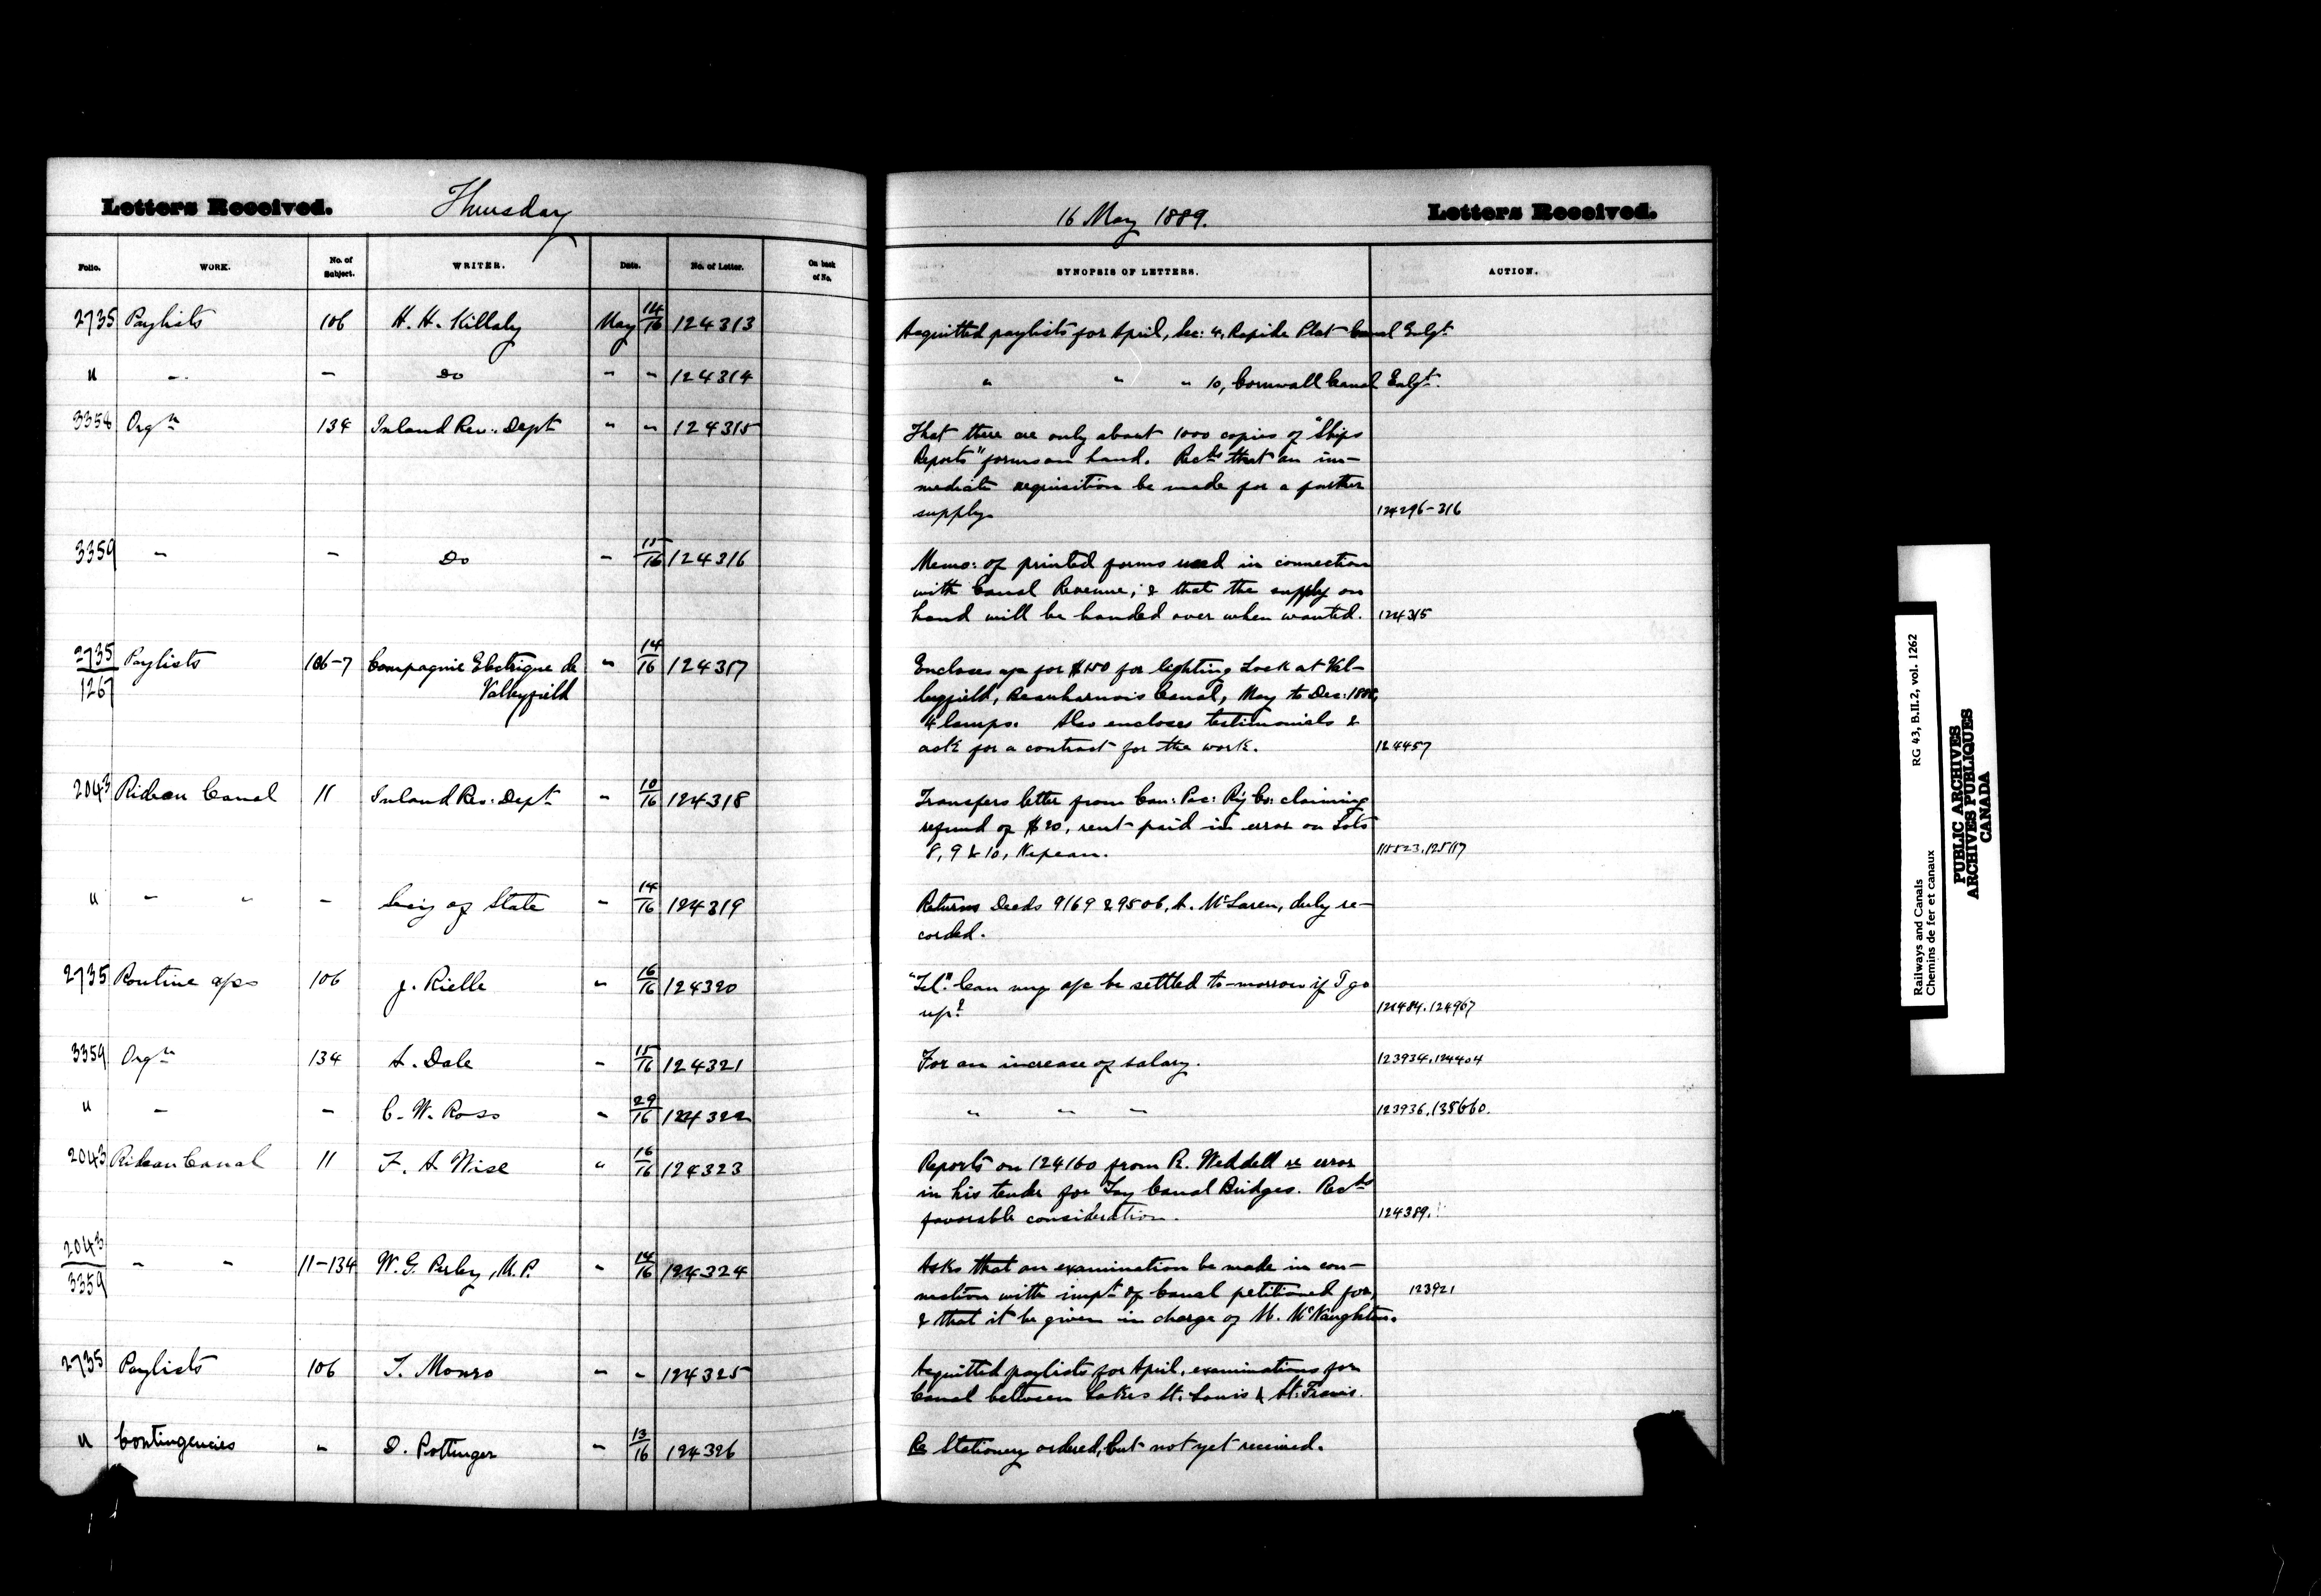 Letters Received. Thursday
Folio. WORK. No. of Subject. WRITER. Date. No. of Letter. On back of No.
2735 Paylists 106 H. H. Killaly May 14/16 124313
" " " Do " " 124314
3358 Orgn 134 Inland Rev: Dept " " 124315
3359 " " Do " 15/16 124316
2735/1267 Paylists 106-7 Compagnie Electrique de " 14/16 124317
Valleyfield
2043 Rideau Canal 11 Inland Rev: Dept " 10/16 124318
" " " " Secy of State " 14/16 124319
2735 Routine a/cs 106 J. Rielle " 16/16 124320
3359 Orgn 134 A. Dale " 15/16 124321
" " " C. W. Ross " 29/16 124322
2043 Rideau Canal 11 F. A. Wise " 16/16 124323
2043/3359 " " 11-134 W. G. Perley, M.P. " 14/16 124324
2735 Paylists 106 T. Monro " " 124325
" Contingencies " D. Pottinger " 13/16 124326
16 May 1889. Letters Received.
SYNOPSIS OF LETTERS. ACTION.
Acquitted paylists for April, Sec: 4, Rapide Plat Canal Enlgt.
" " " 10, Cornwall Canal Enlgt.
That there are only about 1000 copies of "Ships
Reports" forms on hand. Recds that an im-
mediate requisition be made for a further
supply. 124296-316
Memo: of printed forms used in connection
with Canal Revenue; & that the supply on
hand will be handed over when wanted. 124315
Encloses a/c for $150 for lighting Lock at Val-
leyfield, Beauharnois Canal, May to Dec: 1888,
4 lamps. Also encloses testimonials &
ask for a contract for the work. 124457
Transfers letter from Can: Pac: Ry Co: claiming
refund of $20, rent paid in error on Lots
8, 9 & 10, Nepean.
Returns Deeds 9169 & 9506, A. McLaren, duly re-
corded.
"Tel". Can my a/c be settled to-morrow if I go
up? 124967
For an increase of salary. 123934, 124404
" " " 123936, 138660.
Reports on 124160 from R. Weddell re error
in his tender for Tay Canal Bridges. Recds
favorable consideration. 124389.
Asks that an examination be made in con-
nection with impt of Canal petitioned for, 123921
& that it be given in charge of M. McNaughton.
Acquitted paylists for April, examinations for
Canal between Lakes St. Louis & St. Francis.
Re Stationery ordered, but not yet received.
RG 43, B.II.2, vol. 1262
Railways and Canals
Chemins de fer et canaux
PUBLIC ARCHIVES
ARCHIVES PUBLIQUES
CANADA